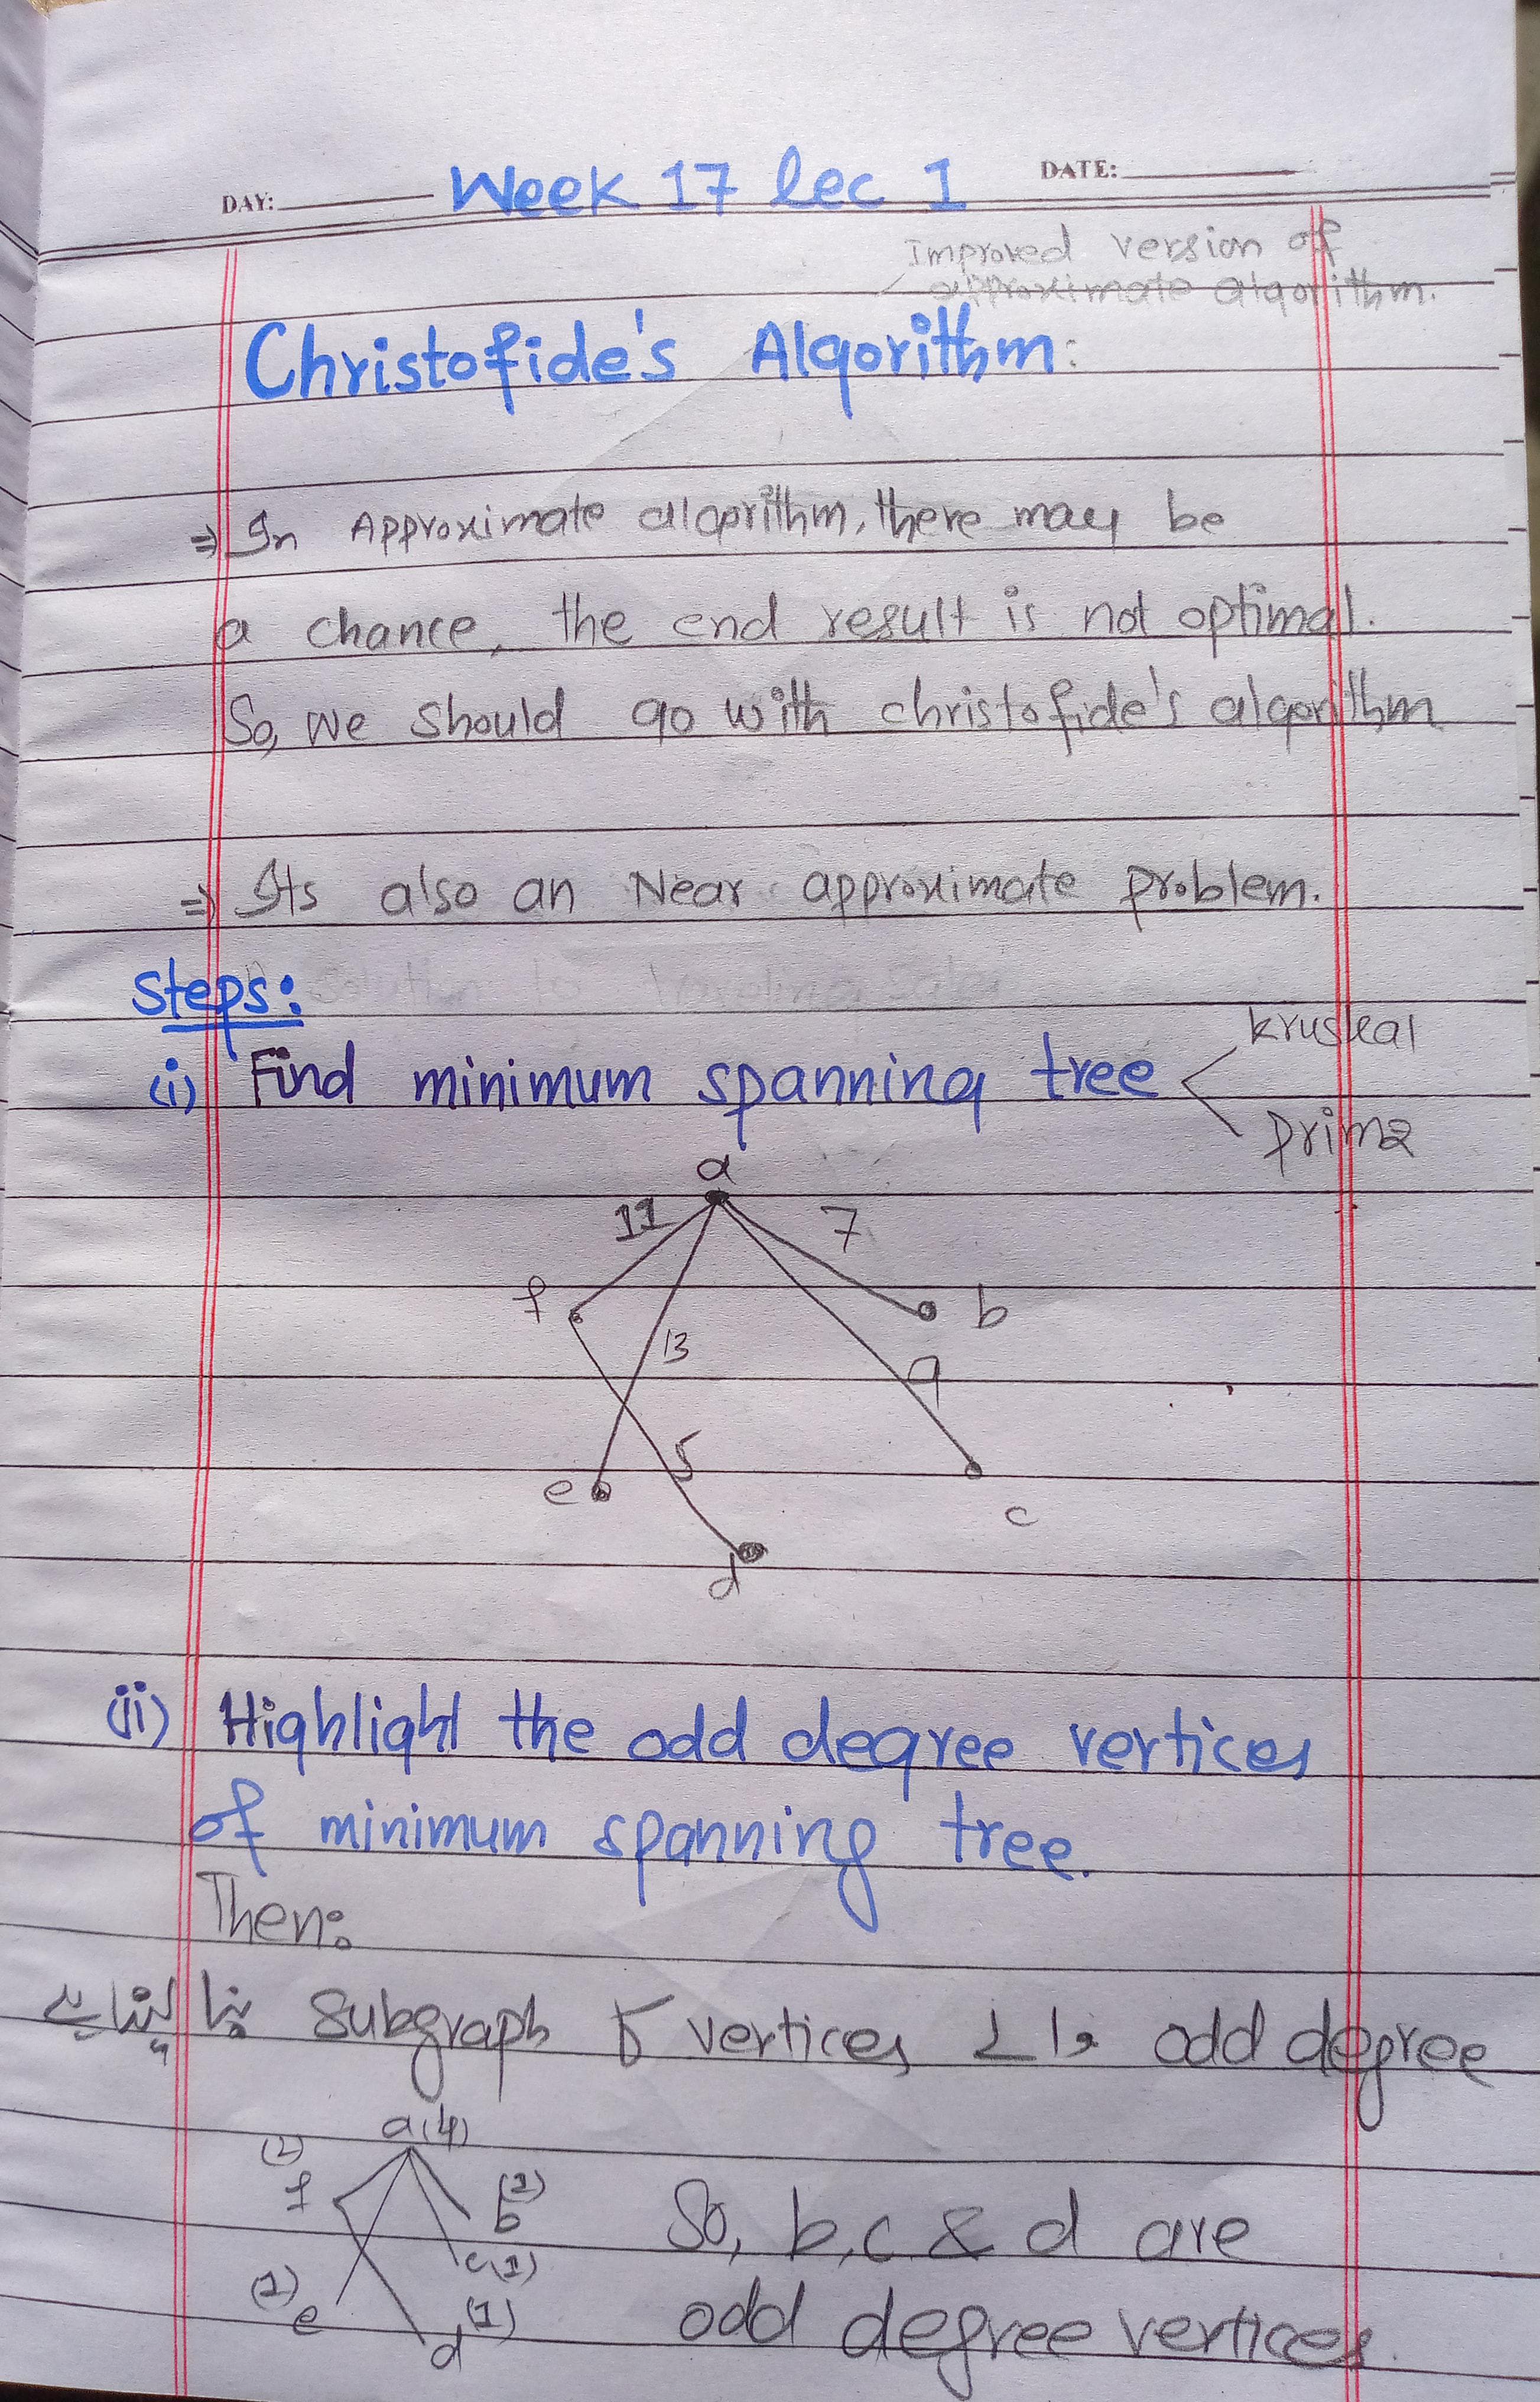 Week 17 lec 1
DAY:
DATE:
Improved version of
approximate algorithm.
Christofide's Algorithm:
⇒ In Approximate algorithm, there may be
a chance, the end result is not optimal.
So, we should go with christofide's algorithm
⇒ Its also an Near approximate problem.
Steps:
(i) Find minimum spanning tree
kruskal
prims
a
11
7
f
b
13
9
5
e
c
d
(ii) Highlight the odd degree vertices
of minimum spanning tree.
Then:
odd degree والے vertices کا Subgraph بنا لینا ہے
a(4)
(2)
f
(1)
b
c(1)
(1)
e
(1)
d
So, b,c & d are
odd degree vertices.